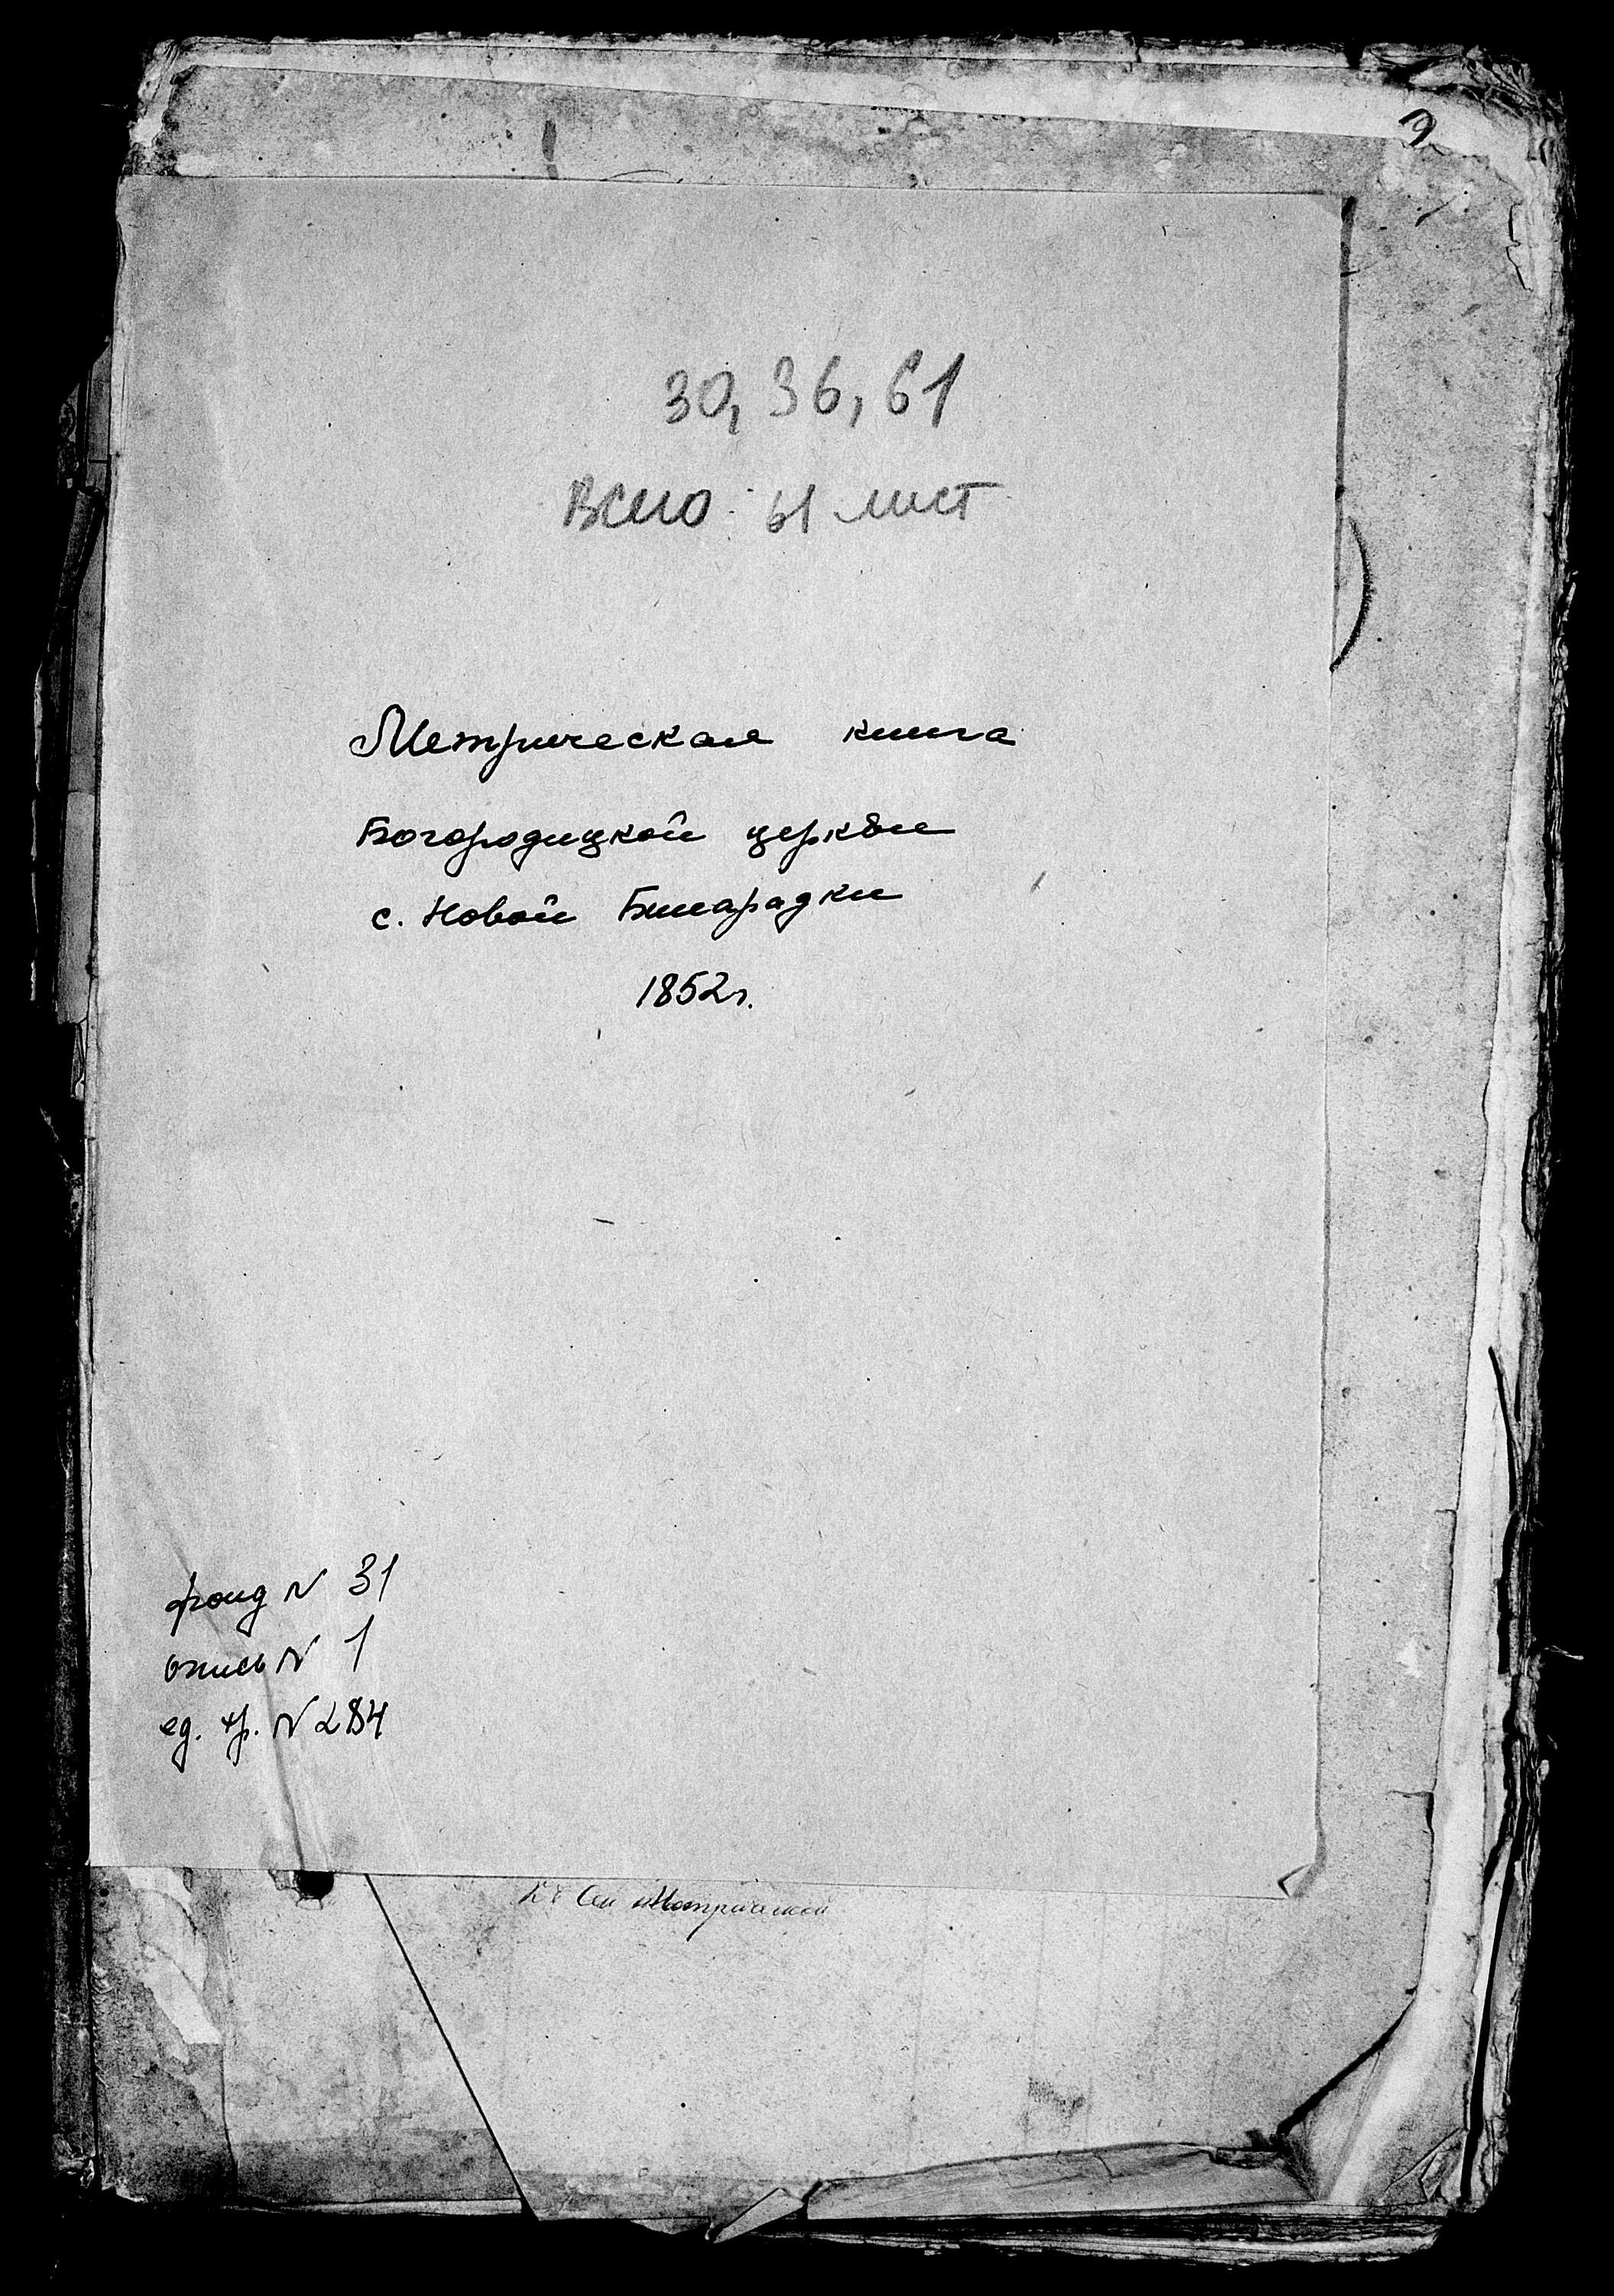 30, 36, 61
Всего 61 лист
Метрическая книга
Богородицкой церкви
с. Новой Бинарадки
1852г.
фонд N 31
опись N 1
ед. хр. N 284
Метрической